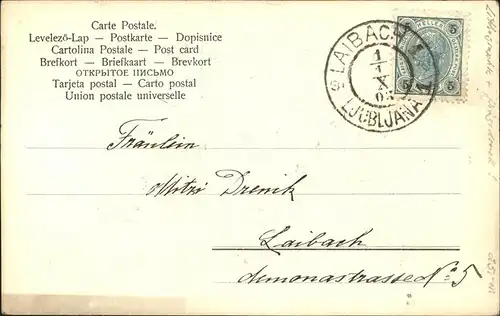 Carte Postale.
Levelező-Lap — Postkarte — Dopisnice
Cartolina Postale — Post card
Brefkort — Briefkaart — Brevkort
ОТКРЫТОЕ ПИСЬМО
Tarjeta postal — Carto postal
Union postale universelle
LAIBACH 1
LJUBLJANA 1
X
HELLER
5 5
Fräulein
Mitzi Drenik
Laibach
Aemonastrasse No 5